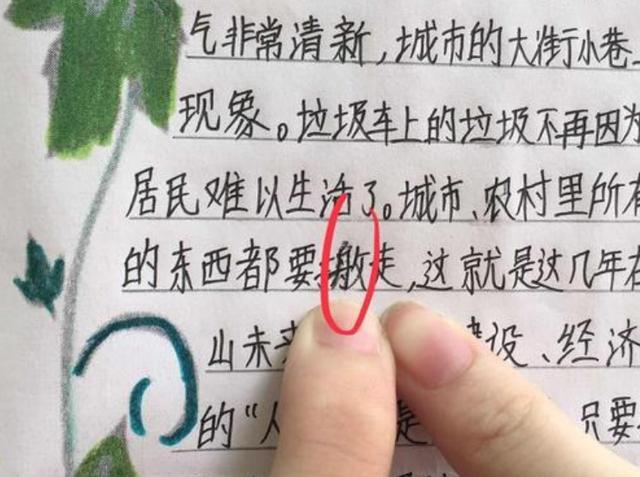 气非常清新,城市的大街小巷
现象。垃圾车上的垃圾不再因为
居民难以生活了。城市、农村里所有
的东西都要走,这就是这几年在
山未设、经济
的“人是只要